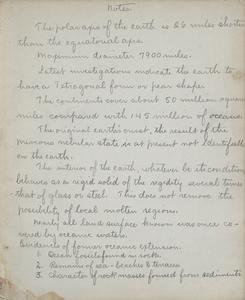 Notes
The polar axis of the earth is 26 miles shorter
than the equatorial axis.
Maximum diameter 7900 miles.
Latest investigations indicate the earth to
have a Tetragonal form or pear shape.
The continents cover about 50 million square
miles compared with 145 million of oceans.
The original earth's crust, the result of the
previous nebular state is at present not identified
on the earth.
The interior of the earth, whatever be its condition
behaves as a rigid solid of the rigidity several times
that of glass or steel. This does not remove the
possibility of local molten regions.
Nearly all land surface known was once co-
vered by oceanic waters.
Evidences of former oceanic extension.
1. Ocean fossils found in rocks.
2. Remains of sea-beaches & terraces
3. Character of rock masses formed from sediments